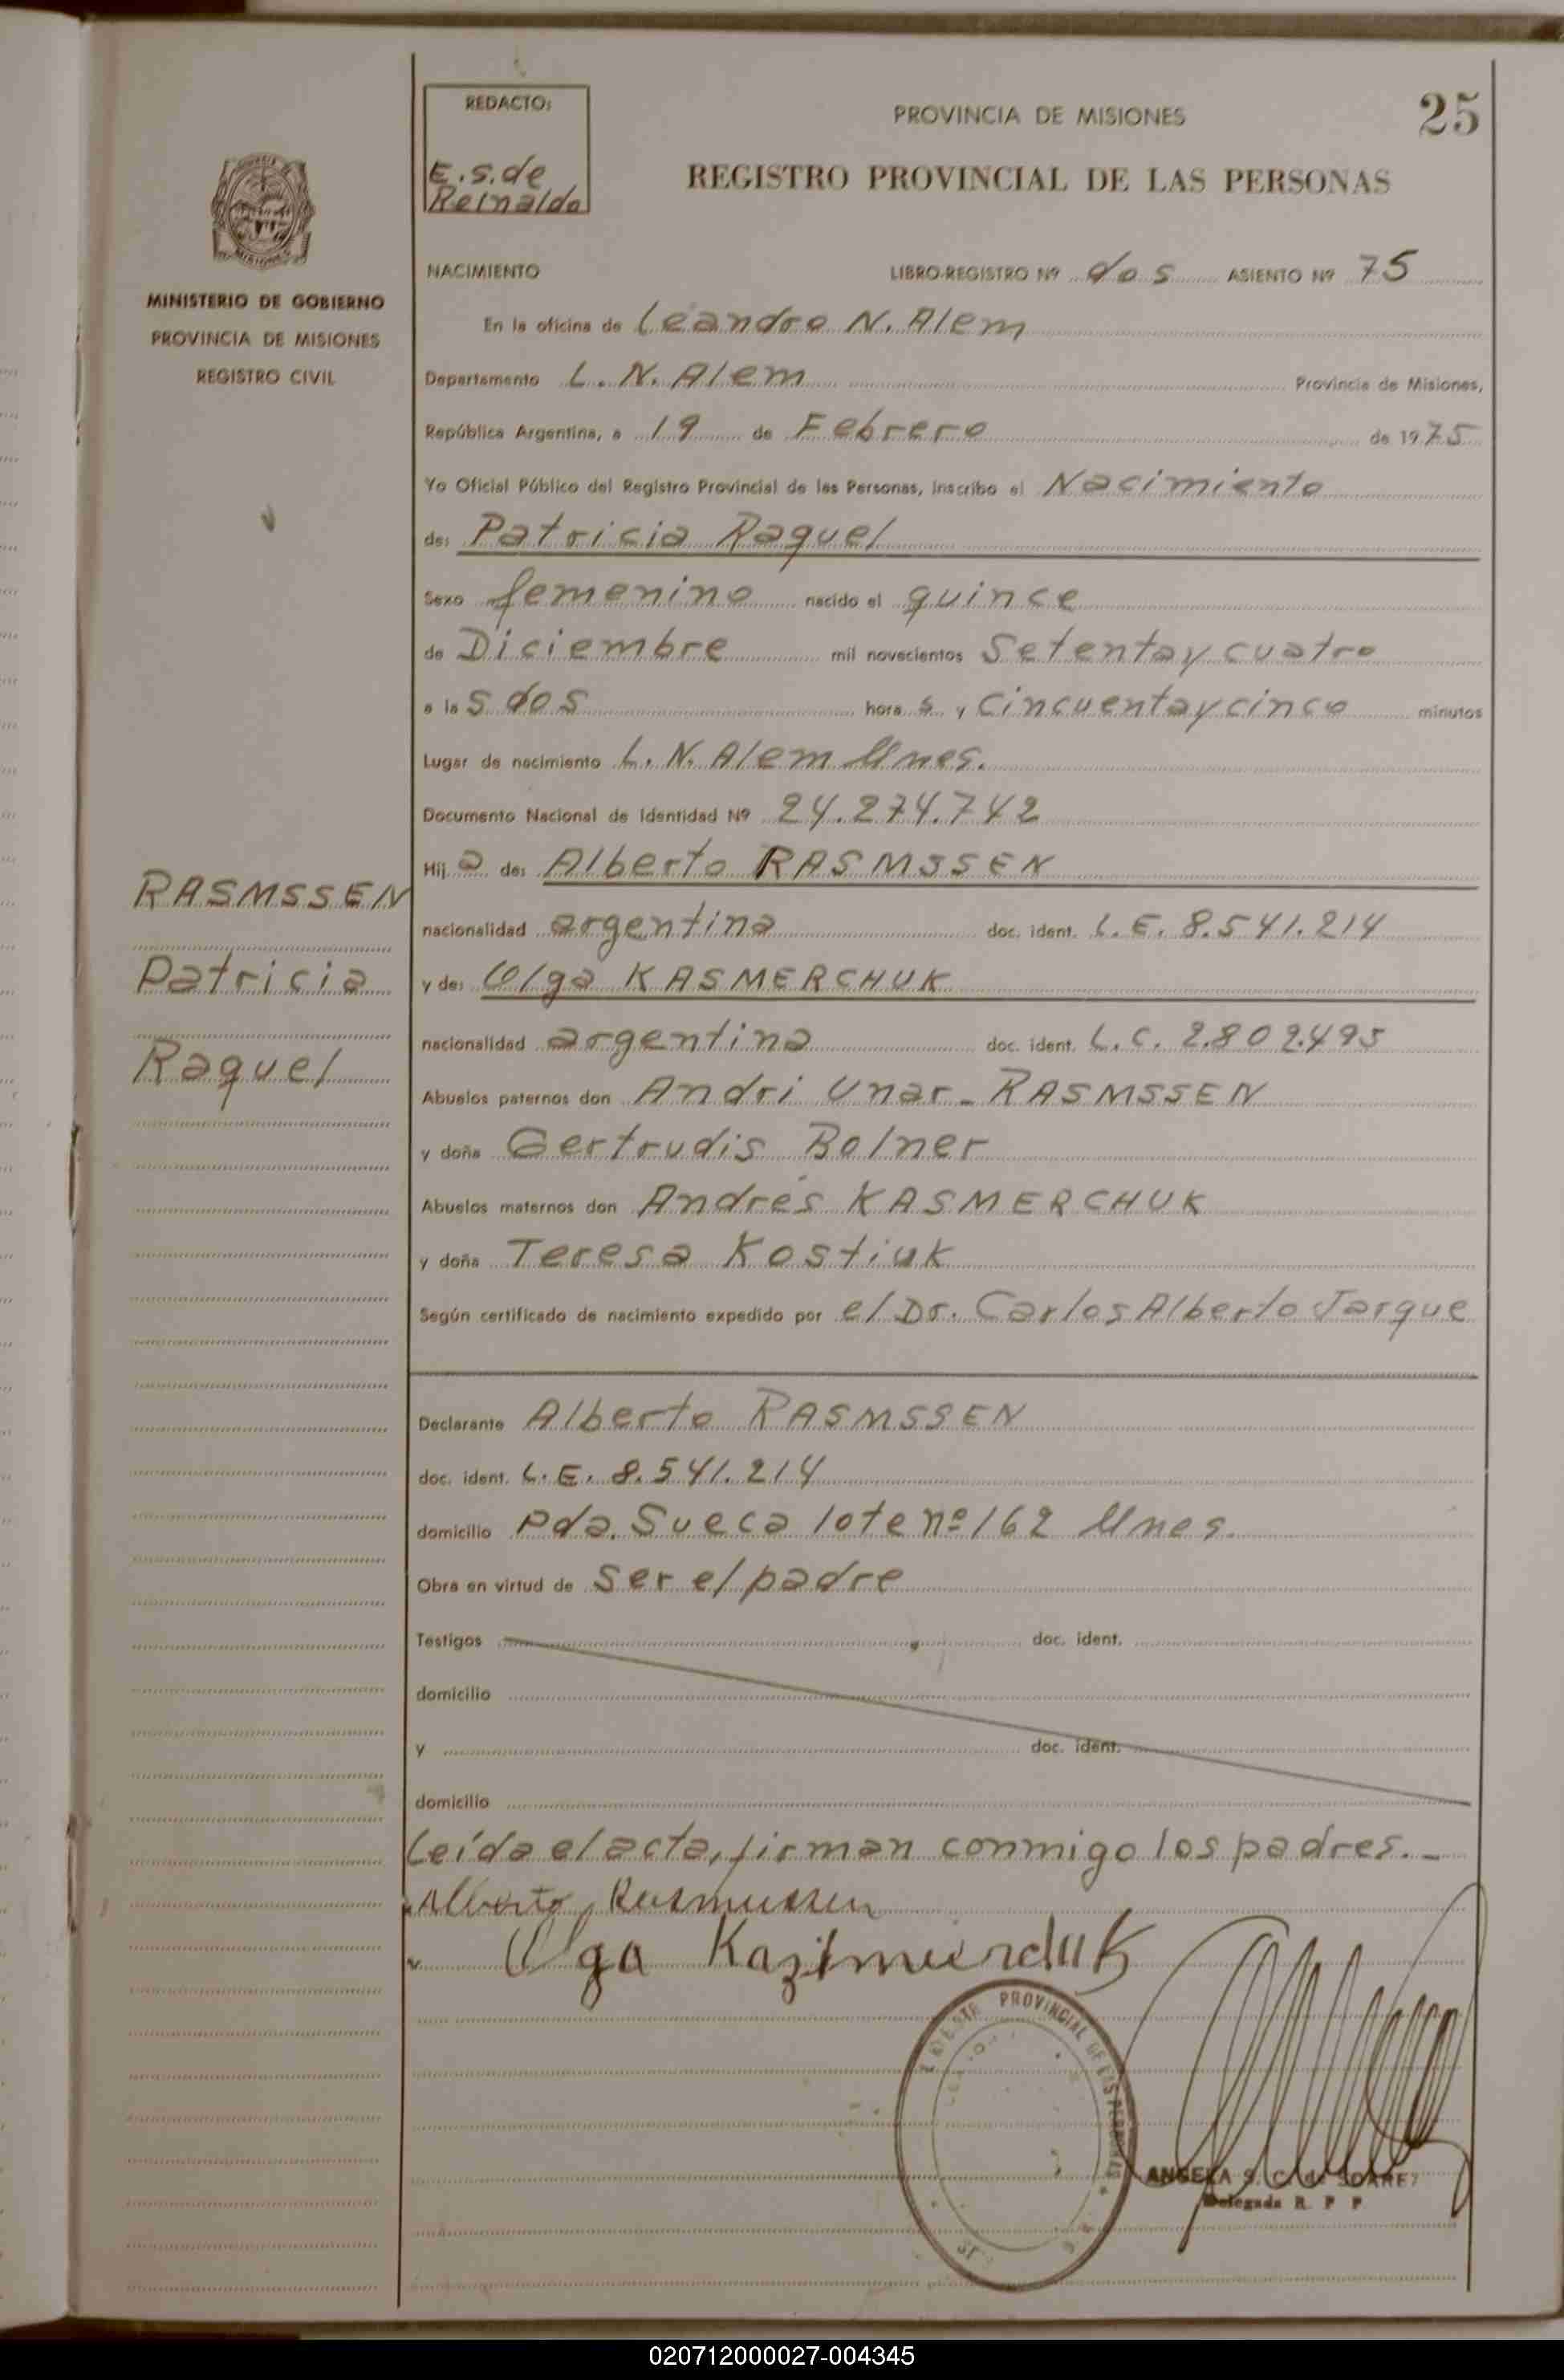 REDACTO:
E.s.de
Reinaldo
PROVINCIA DE MISIONES
25
REGISTRO PROVINCIAL DE LAS PERSONAS
MINISTERIO DE GOBIERNO
PROVINCIA DE MISIONES
REGISTRO CIVIL
NACIMIENTO LIBRO-REGISTRO Nº dos ASIENTO Nº 75
En la oficina de Leandro N. Alem
Departamento L. N. Alem Provincia de Misiones,
República Argentina, a 19 de Febrero de 1975
Yo Oficial Público del Registro Provincial de las Personas, inscribo el Nacimiento
de: Patricia Raquel
Sexo femenino nacido el quince
de Diciembre mil novecientos Setenta y cuatro
a las dos horas y Cincuenta y cinco minutos
Lugar de nacimiento L. N. Alem Mnes.
Documento Nacional de Identidad Nº 24.274.742
Hija de: Alberto RASMSSEN
nacionalidad argentina doc. ident. L.E. 8.541.214
y de: Olga KASMERCHUK
nacionalidad argentina doc. ident. L.C. 2.802.495
Abuelos paternos don Andri Unar - RASMSSEN
y doña Gertrudis Bolner
Abuelos maternos don Andrés KASMERCHUK
y doña Teresa Kostiuk
Según certificado de nacimiento expedido por el Dr. Carlos Alberto Jarque
RASMSSEN
Patricia
Raquel
Declarante Alberto RASMSSEN
doc. ident. L.E. 8.541.214
domicilio Pda. Sueca lote nº 162 Mnes.
Obra en virtud de Ser el padre
Testigos doc. ident.
domicilio
y doc. ident.
domicilio
Leída el acta, firman conmigo los padres.-
Alberto Rasmussen
Olga Kazimierduk
PROVINCIAL DE LAS PERSONAS
ANGELA S. C. de SOAREZ
Delegada R. P. P.
020712000027-004345